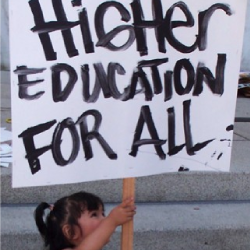 HiGHER
EDUCATION
FOR ALL.